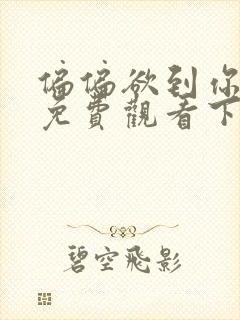 偏偏欲到你
免費觀看下
碧空飛影